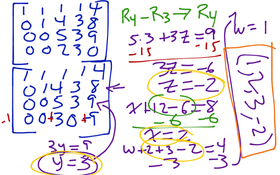 1 1 1 1 4
0 1 4 3 8
0 0 5 3 9
0 0 2 3 0
1 1 1 1 4
0 1 4 3 8
0 0 5 3 9
-1 0 0 +3 0 +9
3y = 9
y = 3
R4 - R3 → R4
5·3 + 3z = 9
-15 -15
3z = -6
z = -2
x + 12 - 6 = 8
-6 -6
x = 2
w + 2 + 3 - 2 = 4
-3 -3
w = 1
(1, 2, 3, -2)